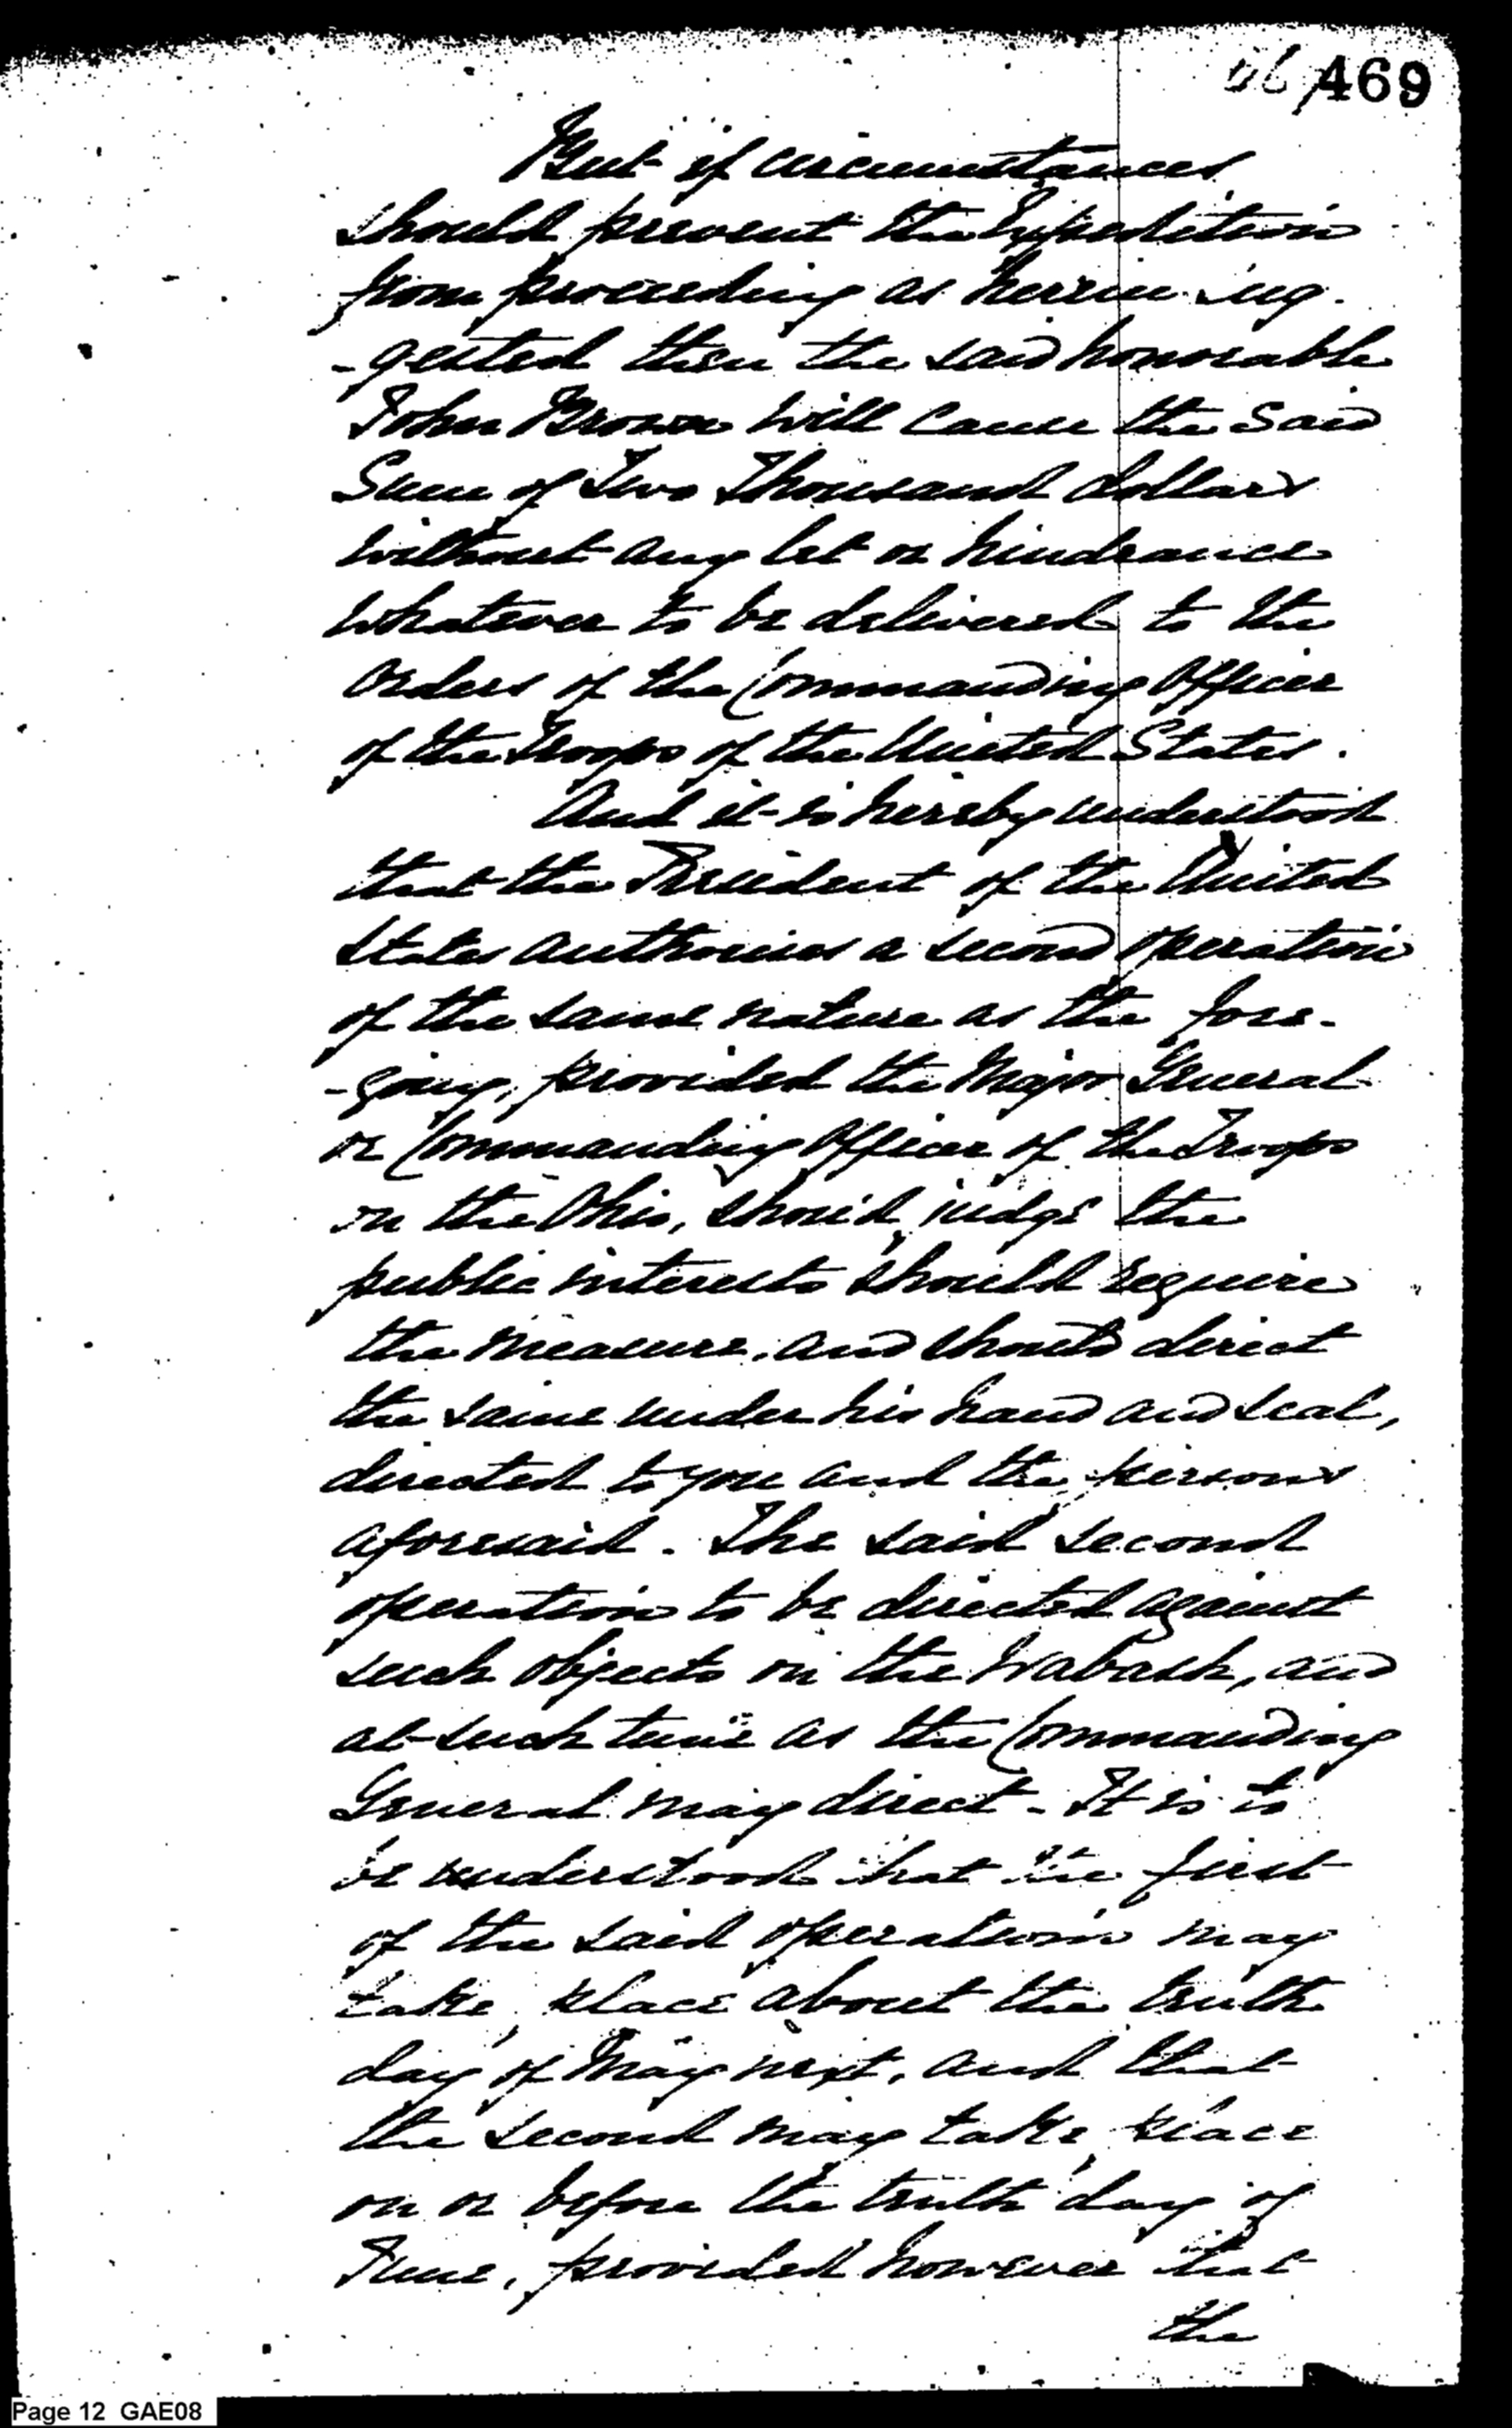 469
But if circumstances
should prevent the Expedition
from proceeding as herein sug-
-gested then the said honorable
John Brown will cause the said
Sum of Two Thousand dollars
without any let or hindrance
whatever to be delivered to the
orders of the Commanding Officer
of the Troops of the United States.
And it is hereby understood
that the President of the United
States authorises a second operation
of the same nature as the fore-
-going, provided the Major General
or Commanding Officer of the Troops
on the Ohio, should judge the
public interests should require
the measure, and should direct
the same under his hand and seal,
directed to you and the persons
aforesaid. The said second
operation to be directed against
such objects on the Wabash, and
at such time as the Commanding
General may direct - It is to
be understood that the first
of the said operations may
take place about the tenth
day of May next, and that
the second may take place
on or before the tenth day of
June, provided however that
the
Page 12 GAE08